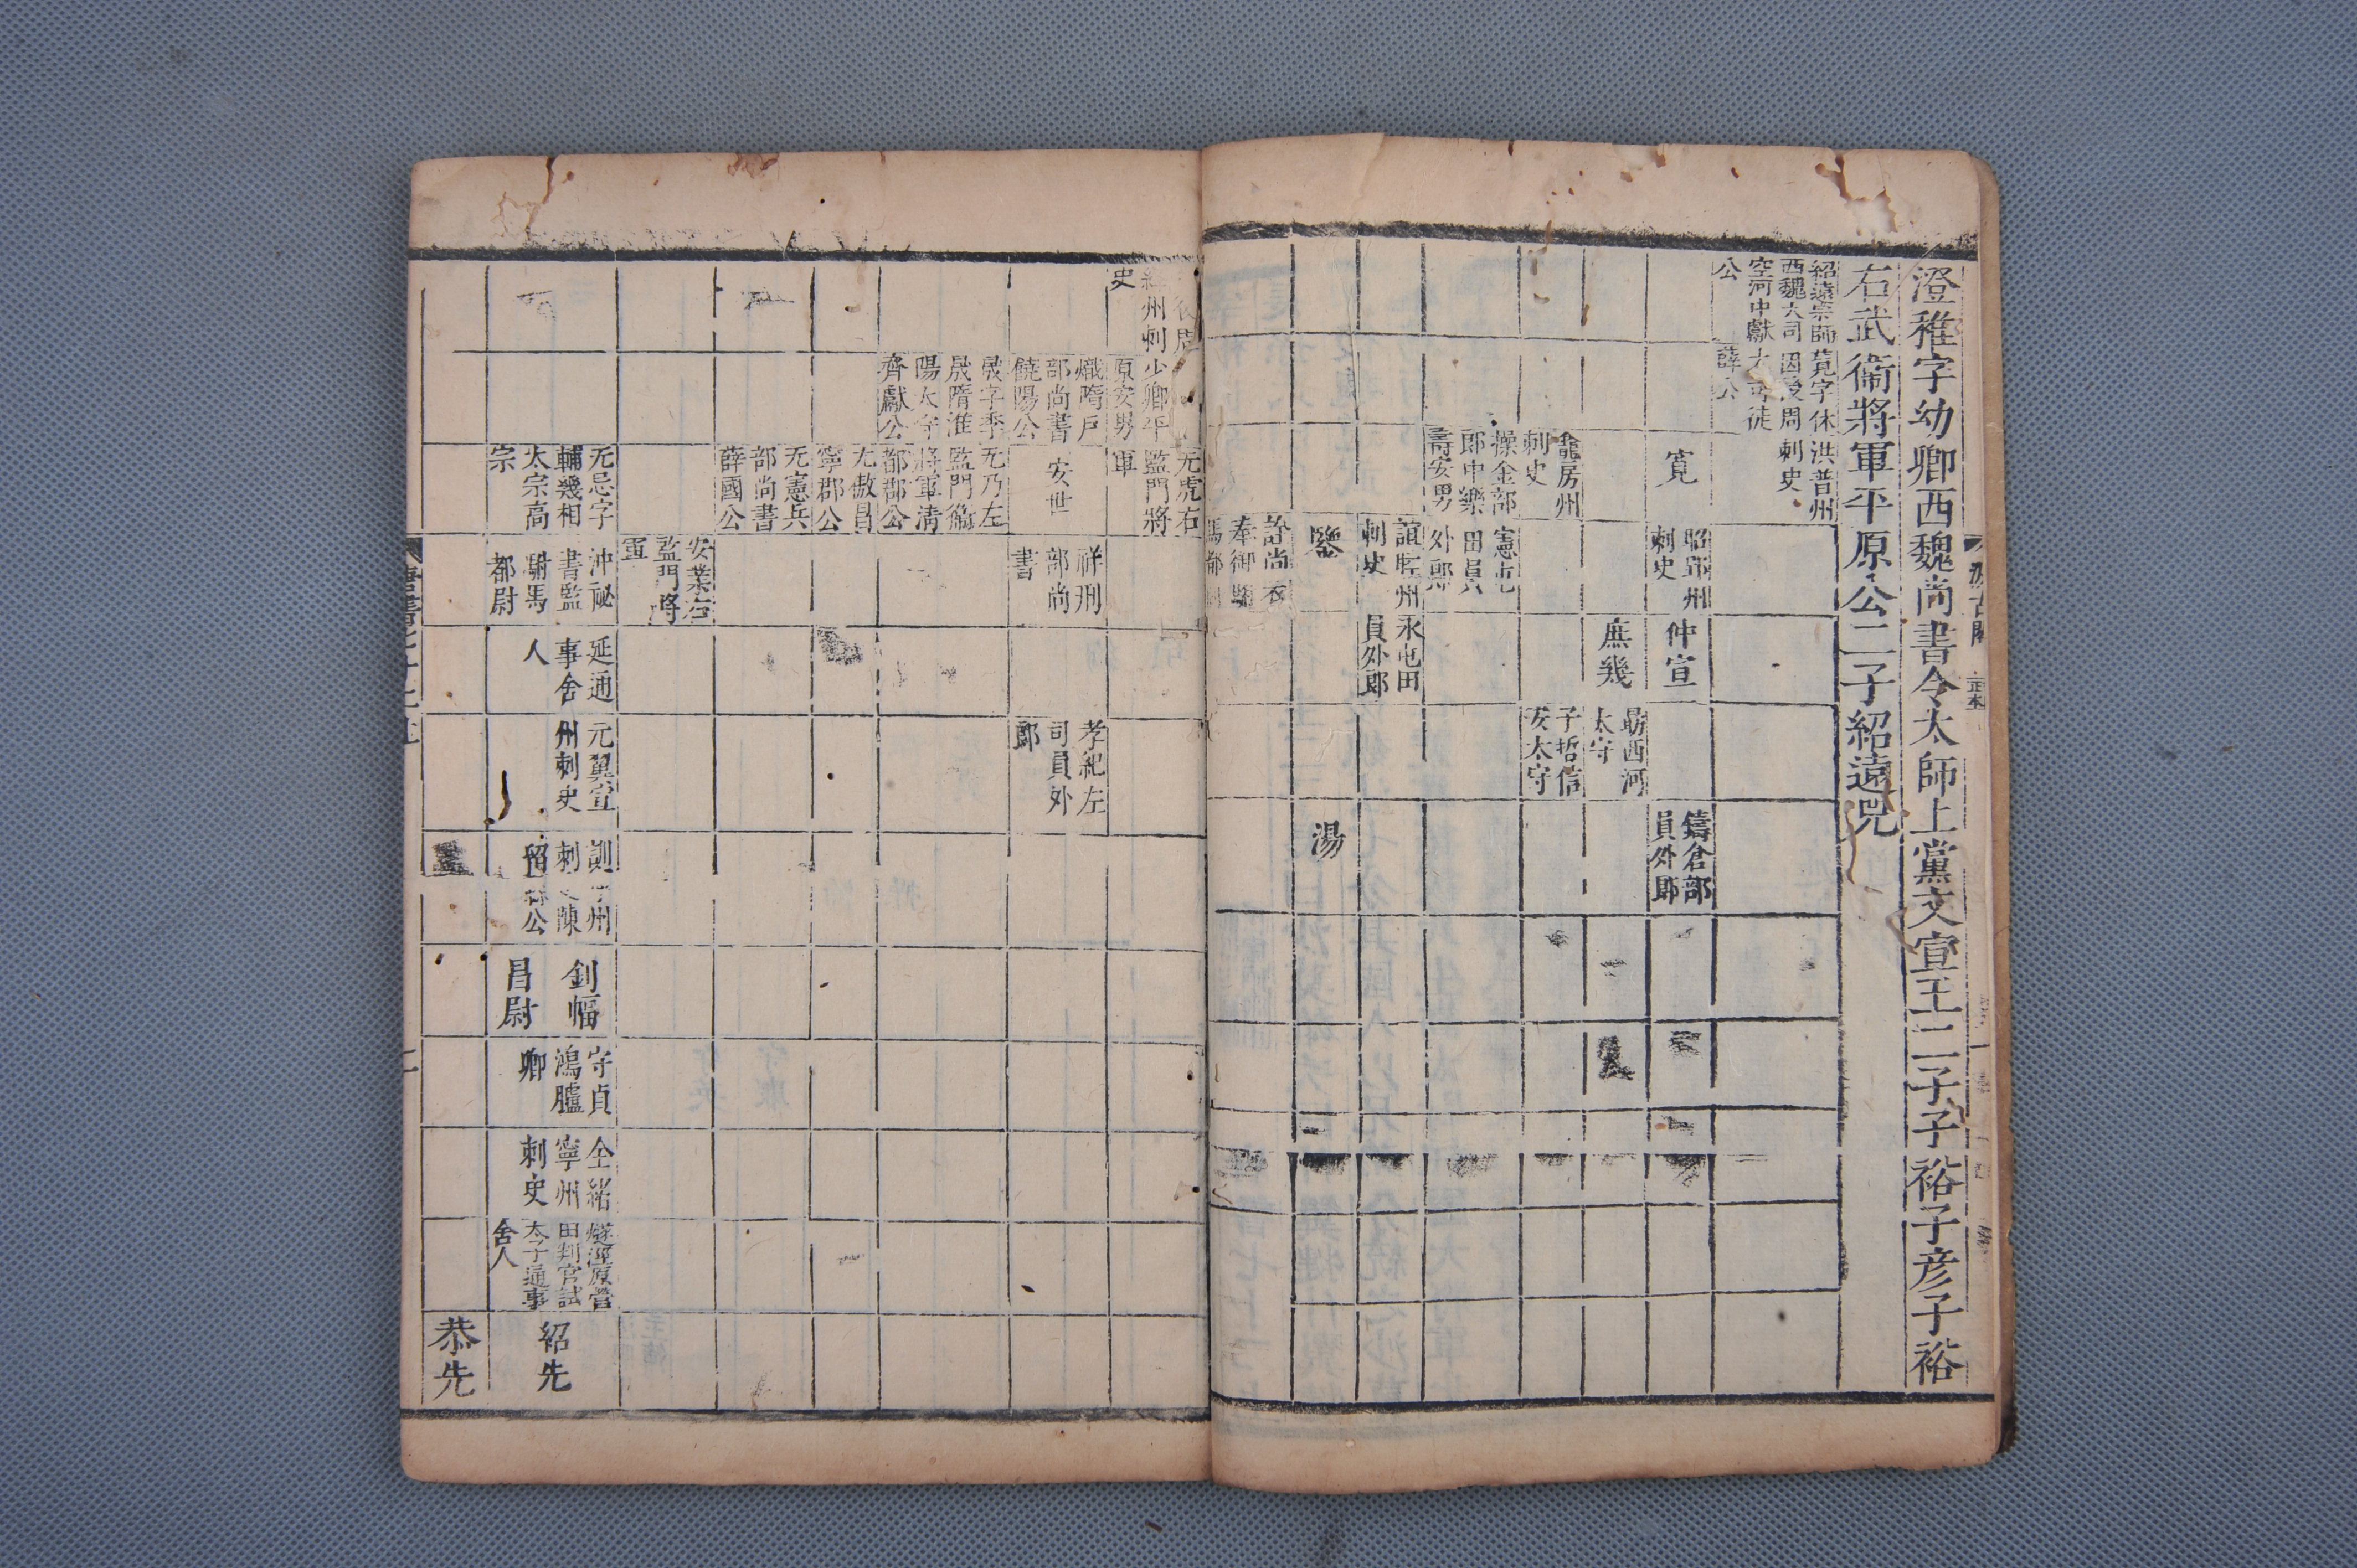 澄稚字幼卿西魏尚書令太師上黨文宣王二子子裕子彦子裕
右武衞將軍平原公二子紹遠兕
紹遠宗師
西魏大司
空河中獻
公
覽字休
因後周
大司徒
薛公
洪普州
刺史
寛
昭郢州
刺史
仲宣
鑄倉部
員外郎
庶幾
勗西河
太守
龕房州
刺史
子哲信
安太守
操金部
郎中樂
壽安男
憲屯
田員
外郎
誼睦州
刺史
永屯田
員外郎
鑒
湯
詮尚衣
奉御駙
馬都尉
絳州刺
史
少卿平
原安男
无虎右
監門將
軍
熾隋戶
部尚書
饒陽公
安世
祥刑
部尚
書
孝紀左
司員外
郎
晟字季
晟隋淮
陽太守
齊獻公
无乃左
監門衞
將軍清
都郡公
无傲昌
寧郡公
无憲兵
部尚書
薛國公
安業右
監門將
軍
无忌字
輔幾相
太宗高
宗
沖祕
書監
駙馬
都尉
延通
事舍
人
元翼宣
州刺史
釗幅
昌尉
守貞
鴻臚
卿
全緒
寧州
刺史
燧涇原營
田判官試
太子通事
舍人
紹先
恭先